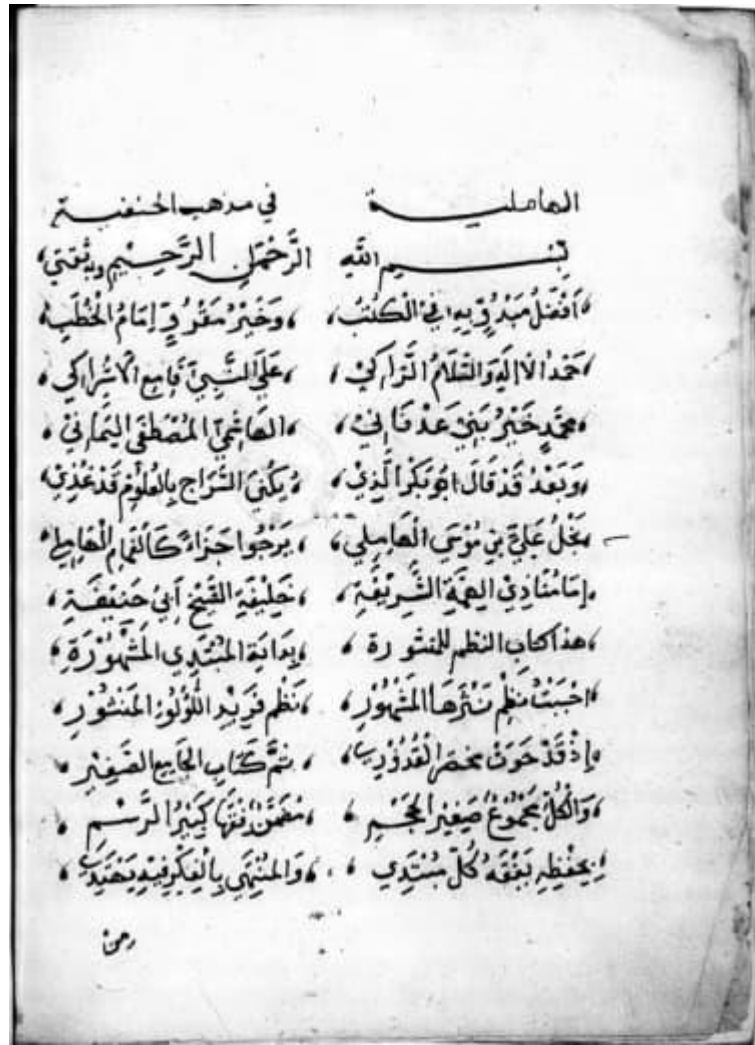 الهاملية في مذهب الحنفية
بسم الله الرَّحْمٰنِ الرَّحِيْمِ وبه ثقتي
اَفْضَلُ مَبْدُوٍّ بِهِ في الْكُتُبِ ، وَخَيْرُ مَقْرُوٍّ إمَامُ الْخُطَبِ
حَمْدُ الْاِلٰهِ وَالسَّلَامُ الزَّاكِيْ ، عَلَى النَّبِيِّ قَامِعِ الْاِشْرَاكِي
مُحَمَّدٍ خَيْرُ بَنِيْ عَدْنَانِيْ ، الْهَاشِمِيِّ الْمُصْطَفَى الْيَمَانِيْ
وَبَعْدُ قَدْ قَالَ اَبُوْبَكْرِ الَّذِيْ ، يُكْنَى السِّرَاج بِالْعُلُوْمِ قَدْ غُذِيْ
نَجْلُ عَلِيِّ بْنِ مُوْسَى الْهَامِلِي ، يَرْجُوا جَزَاءً كَالْغَمَامِ الْهَامِلِ
إمَامُنَا ذِيْ الْهِمَّةِ الشَّرِيْفَةِ ، خَلِيْفَةِ الشَّيْخِ اَبِيْ حَنِيْفَةِ ،
هذا كتاب النظم للمنثورة ، بِدَايَةِ الْمُبْتَدِي الْمَشْهُوْرَةِ ،
اَحْبَبْتُ نَظْمَ نَثْرِهَا الْمَشْهُوْرِ ، نَظْمَ فَرِيْدِ اللُّؤْلُوءِ الْمَنْثُوْرِ ،
إِذْ قَدْ حَوَتْ مختصر الْقُدُوْرِي ، ثُمَّ كِتَابَ الجَامِعِ الصَّغِيْرِ ،
وَالْكُلُّ مَجْمُوْعٌ صَغِيْرُ الْحَجْمِ ، كَبِيْرُ الرَّسْمِ ،
بِحِفْظِهِ يَفْقَهُ كُلُّ مُبْتَدِي ، وَالْمُنْتَهِي بِالْفِكْرِ فِيْهِ يَهْتَدِي ،
من